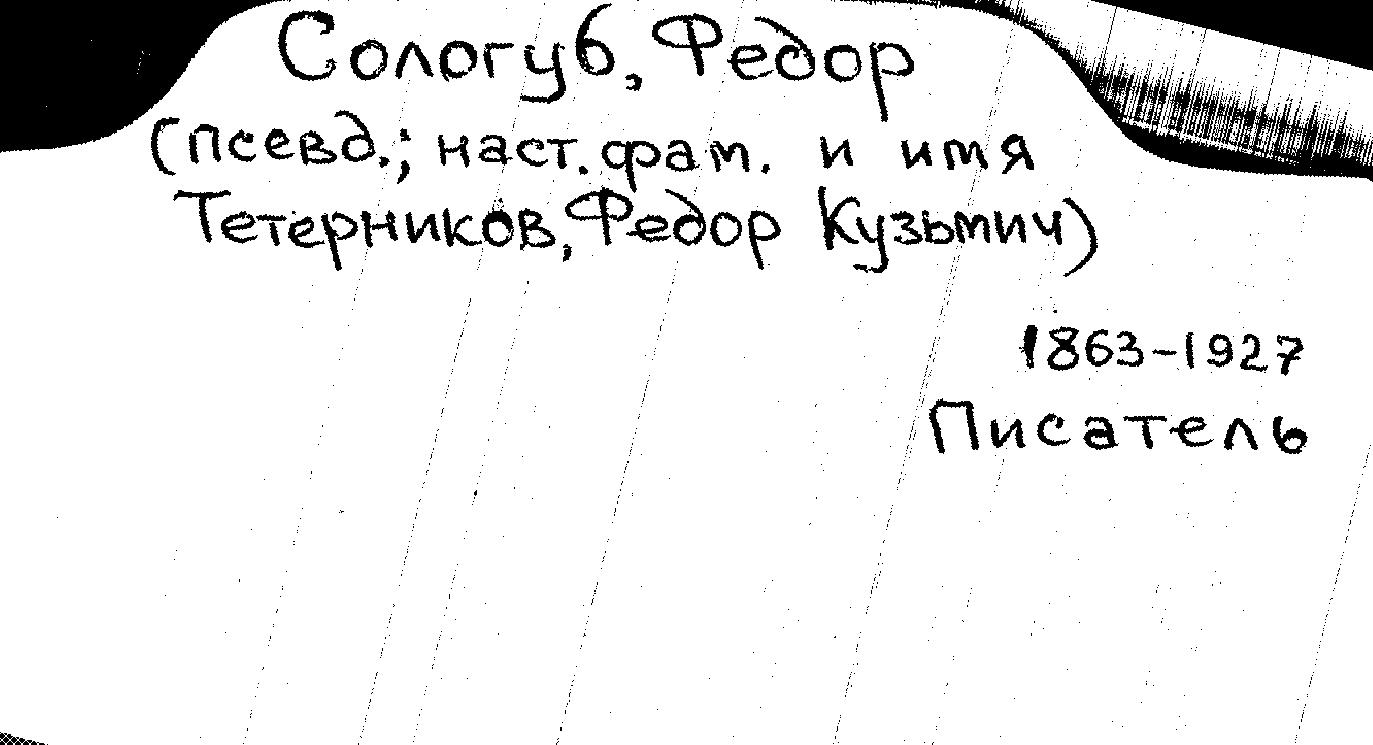 Сологуб, Федор
(псевд.; наст. фам. и имя
Тетерников, Федор Кузьмич)
1863-1927
Писатель